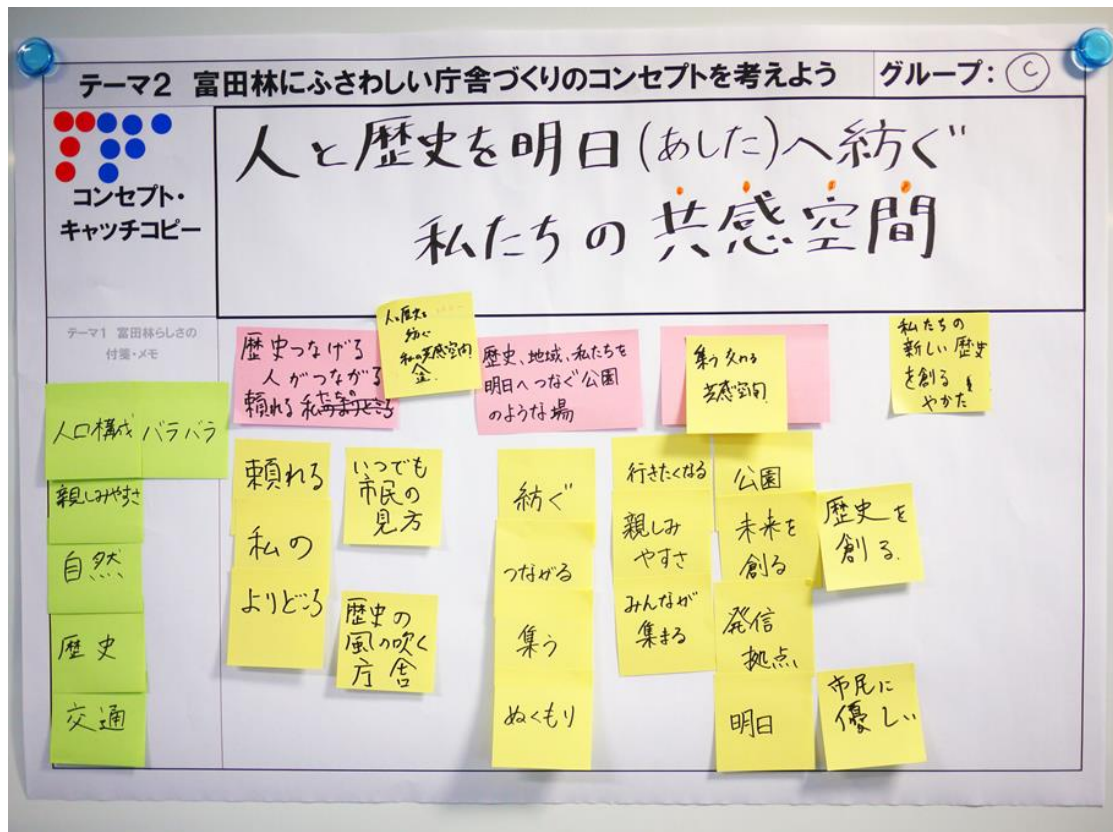 テーマ2 富田林にふさわしい庁舎づくりのコンセプトを考えよう グループ: C
コンセプト・
キャッチコピー
人と歴史を明日(あした)へ紡ぐ
私たちの共感空間
テーマ1 富田林らしさの
付箋・メモ
人口構成
バラバラ
親しみやすさ
自然
歴史
交通
歴史つなげる
人がつながる
頼れる私たちのよりどころ
人と歴史を
紡ぐ
私の共感空間
歴史、地域、私たちを
明日へつなぐ公園
のような場
集う交わる
共感空間
私たちの
新しい歴史
を創る
やかた
頼れる
私の
よりどころ
いつでも
市民の
見方
歴史の
風の吹く
庁舎
紡ぐ
つながる
集う
ぬくもり
行きたくなる
親しみ
やすさ
みんなが
集まる
公園
未来を
創る
発信
拠点
明日
歴史を
創る
市民に
優しい